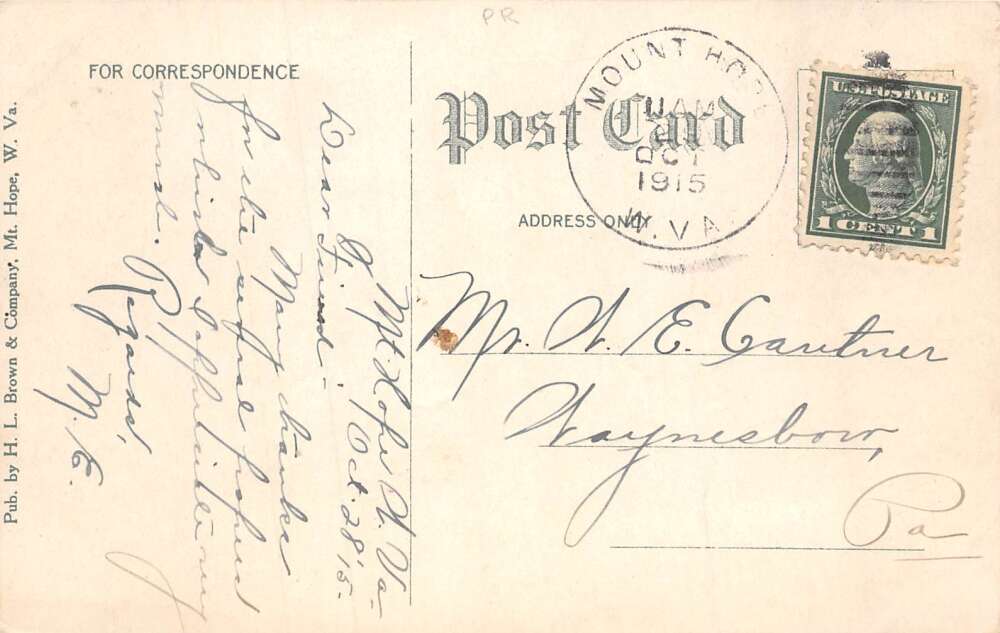 PR
FOR CORRESPONDENCE
Post Card
ADDRESS ONLY
MOUNT HOPE
11 AM
OCT
1915
W. VA.
U.S. POSTAGE
1 CENT 1
Mt. Hope W. Va.
Oct. 28 '15.
Dear Friend -
Many thanks
for the
much.
Regards'
M. E.
Mr. W. E. Cautner
Waynesboro,
Pa
Pub. by H. L. Brown & Company, Mt. Hope, W. Va.